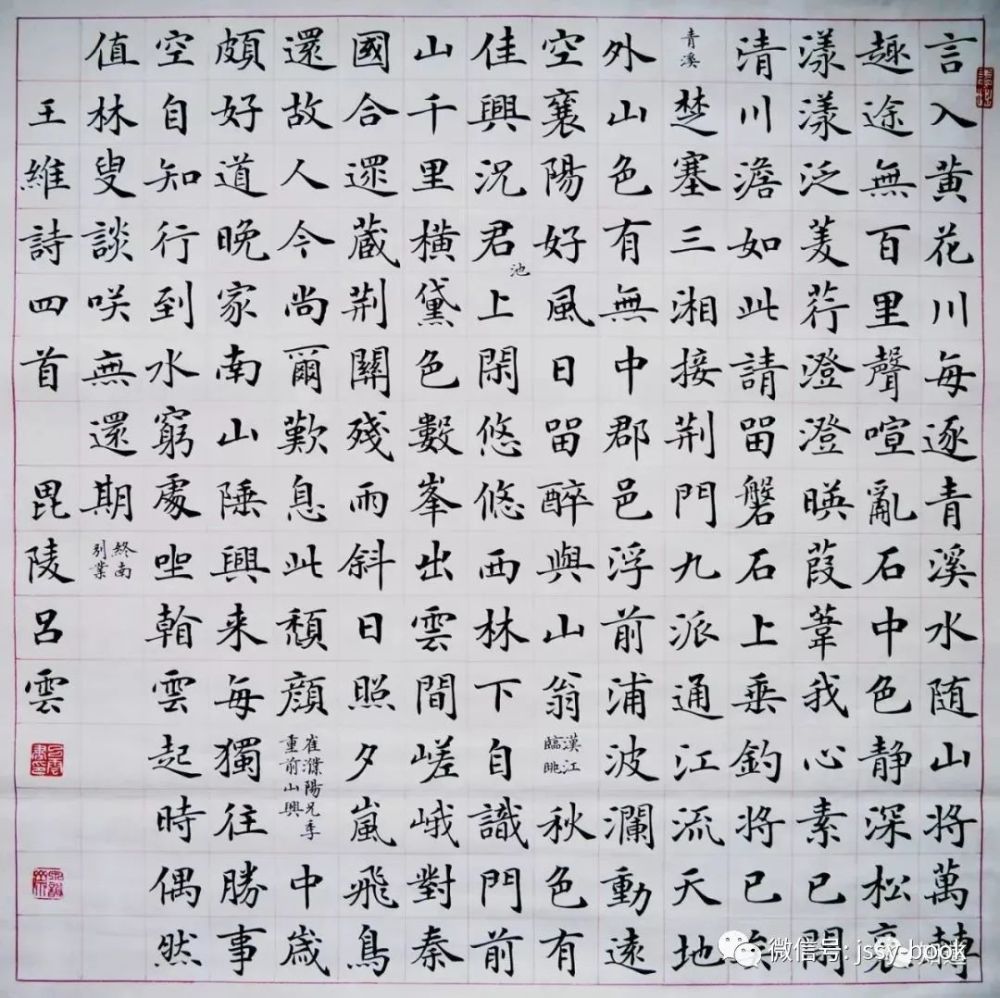 言入黄花川每逐青溪水随山將萬轉
趣途無百里聲喧亂石中色静深松裏
漾漾泛菱荇澄澄暎葭葦我心素已閒
清川澹如此請留磐石上垂釣將已矣
青溪 楚塞三湘接荊門九派通江流天地
外山色有無中郡邑浮前浦波瀾動遠
空襄陽好風日留醉與山翁 漢江臨眺 秋色有
佳興況君池上閑悠悠西林下自識門前
山千里橫黛色數峯出雲間嵯峨對秦
國合遝藏荊關殘雨斜日照夕嵐飛鳥
還故人今尚爾歎息此頹顏 崔濮陽兄季重前山興 中歲
頗好道晚家南山陲興来每獨往勝事
空自知行到水窮處坐看雲起時偶然
值林叟談咲無還期 終南別業
王維詩四首 毘陵呂雲
微信号: jssy-book